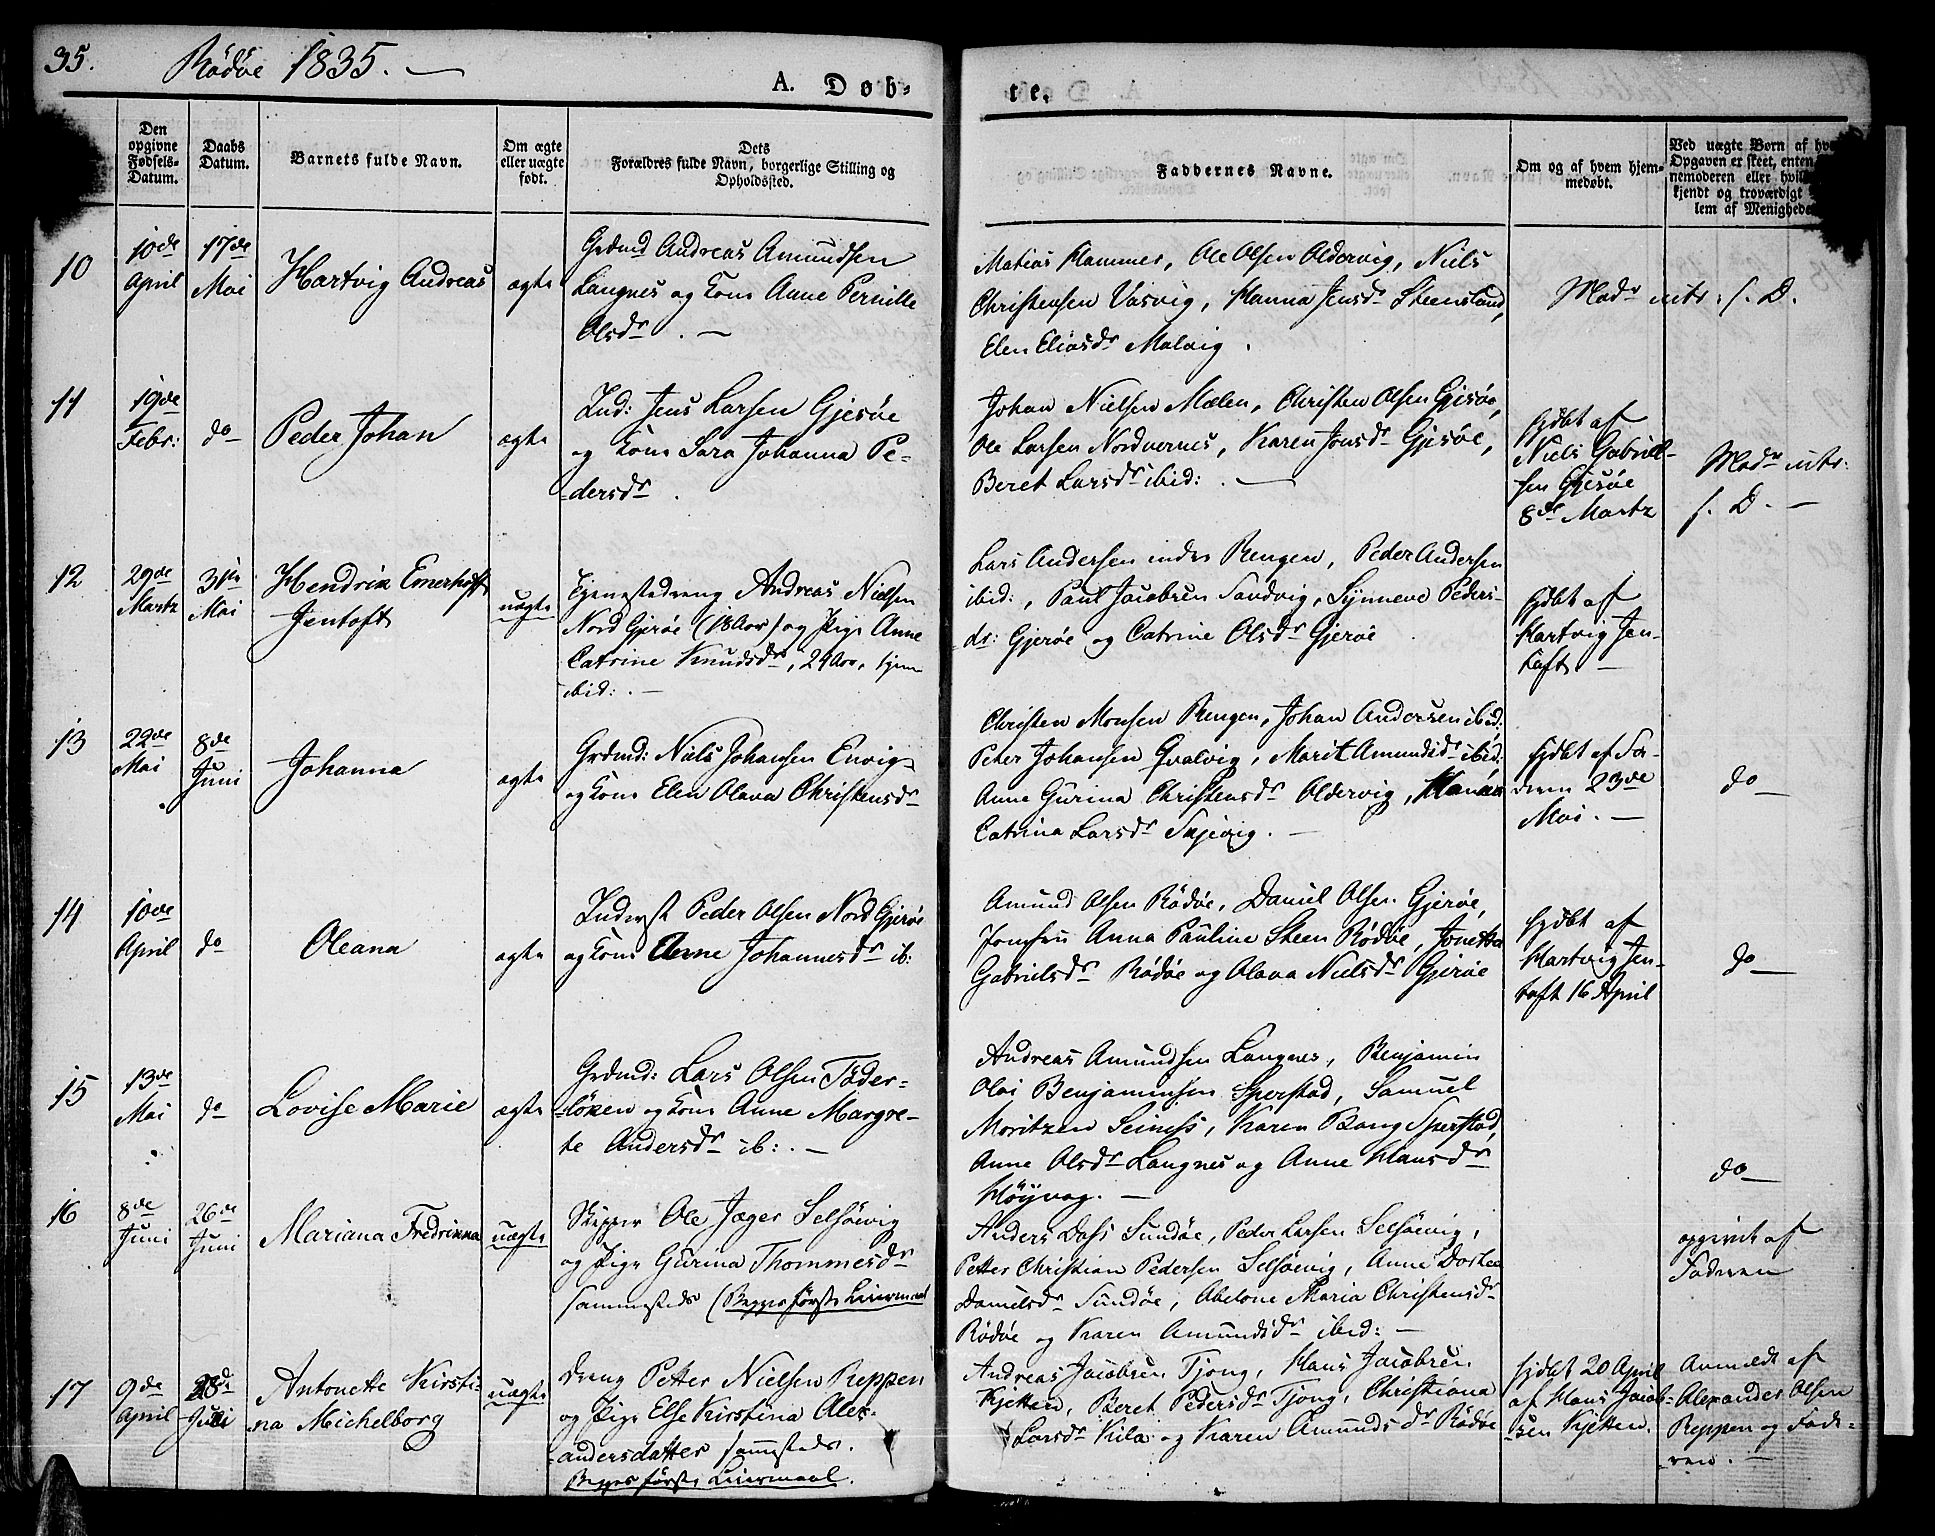 35.
Rödöe 1835. —
A. Døb-
te.
Den opgivne Fødsels-Datum.
Daabs Datum.
Barnets fulde Navn.
Om ægte eller uægte født.
Dets Forældres fulde Navn, borgerlige Stilling og Opholdssted.
Faddernes Navne.
Om og af hvem hjemmedøbt.
Ved uægte Børn af hv
Opgaven er skeet, enten
nemoderen eller hvil
kjendt og troværdigt
lem af Menighede
10
10de April
17de Mai
Hartvig Andreas
ægte
Grdmd Andreas Amundsen
Langnes og Kone Anne Pernille
Olsdr . —
Matias Hammer, Ole Olsen Oldervig, Niels
Christensen Vasvig, Hanna Jensdr Steensland,
Elen Eliasdr Malvig .
Modr intr: f. D.
11
19de Febr:
do
Peder Johan
ægte
Ind: Jens Larsen Gjesöe
og Kone Sara Johanna Pe-
-dersdr .
Johan Nielsen Mælen, Christen Olsen Gjesöe,
Ole Larsen Nordvernes, Karen Jonsdr Gjesöe,
Beret Larsdr ibid: . —
hjdbt af
Niels Gabriel-
sen Gjesöe
8de Martz
Modr intr:
f. D. —
12
29de Martz
31te Mai
Hendrik Emerhoft
Jentoft
uægte
Tjenestedreng Andreas Nielsen
Nord Gjeröe (18 Aar) og Pige Anne
Catrine Knudsdr, 29 Aar, tjen
ibid: . —
Lars Andersen indre Rengen, Peder Andersen
ibid:, Paul Jacobsen Sandvig, Synneve Peders-
dr: Gjeröe og Catrine Olsdr Gjeröe
hjdbt af
Hartvig Jen-
toft —
13
22de Mai
8de Juni
Johanna
ægte
Grdmd: Niels Johansen Envig
og Kone Elen Olava Christensdr
Christen Monsen Rengen, Johan Andersen ibid:
Peter Johansen Qvalvig, Marit Amundsdr ibid:
Anne Gurina Christensdr Oldervig, Hanna
Catrina Larsdr Skjevig. —
hjdbt af Fa-
deren 23de
Mai. —
do
14
10de April
do
Oleana
ægte
Inderst Peder Olsen Nord Gjeröe
og Kone Anne Johannesdr ib:
Amund Olsen Rödöe, Daniel Olsen Gjeröe,
Jomfru Anna Pauline Steen Rödöe, Jonetta
Gabrielsdr Rödöe og Olava Nielsdr Gjeröe
hjdbt af
Hartvig Jen-
toft 16 April
do
15
13de Mai
do
Lovise Marie
ægte
Grdmd: Lars Olsen Töder-
-löken og Kone Anne Margre-
te Andersdr ib: . —
Andreas Amundsen Langnes, Benjamin
Olai Benjaminsen Sperstad, Samuel
Moritzen Seines, Karen Bang Sperstad,
Anne Olsdr Langnes og Anne Hansdr
Höyvag. —
do
16
8de Juni
26de Juni
Mariana Fredrikka
uægte
Skipper Ole Jæger Selsöevig
og Pige Gurina Thommesdr
sammesteds (Begges förste Leiermaal
Anders Dass Sundöe, Peder Larsen Selsöevig,
Petter Christian Pedersen Selsöevig, Anne Dorthea
Danielsdr Sundöe, Abelone Maria Christensdr
Rödöe og Karen Amundsdr ibid: —
opgivet af
Faderen
17
9de April
28de Juni
Antonette Kirsti-
na Michelborg
uægte
Dreng Petter Nielsen Reppen
og Pige Else Kirstina Alex-
andersdatter sammesteds.
Begges förste Leiermaal.
Andreas Jacobsen Tjong, Hans Jacobsen
Kjetten, Beret Pedersdr Tjong, Christiana
Larsdr Kila og Karen Amundsdr Rödöe
hjdbt 20 April
af Hans Jacob-
-sen Kjetten.
Anmeldt af
Alexander Olsen
Reppen og Fade-
-ren. —